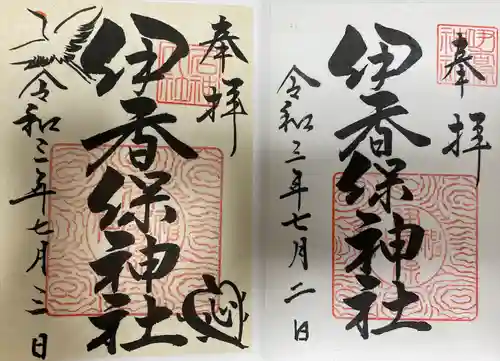 奉拝
伊香保神社
令和三年七月三日
奉拝
伊香保神社
令和三年七月二日